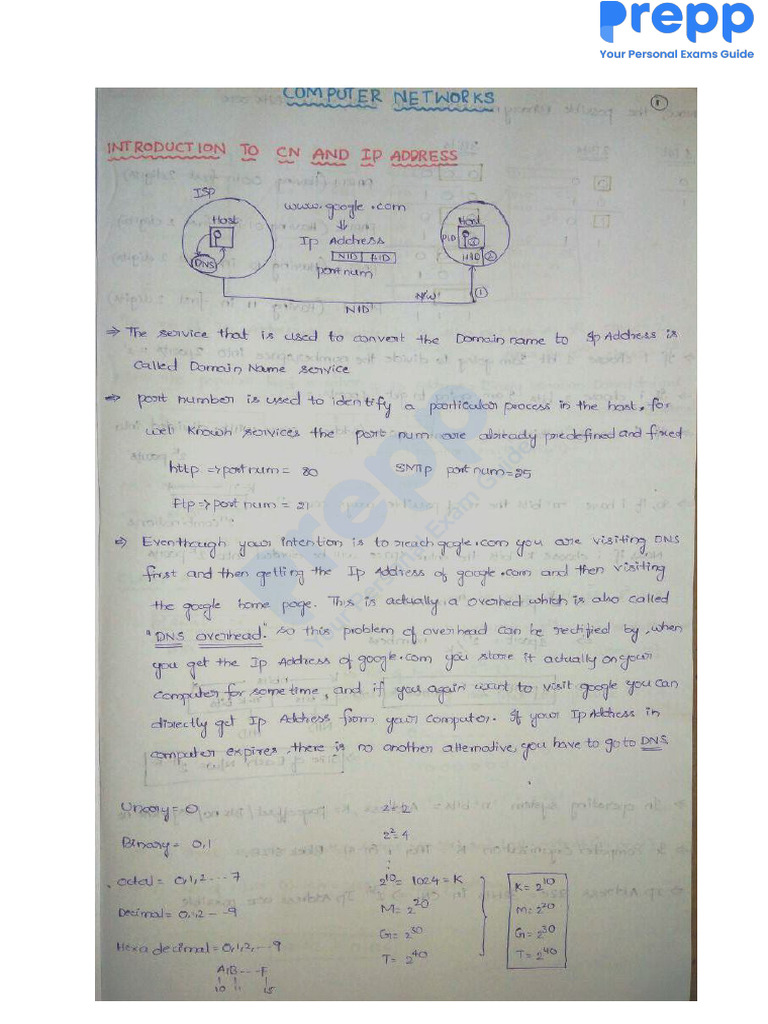 Prepp
Your Personal Exams Guide
COMPUTER NETWORKS
1
INTRODUCTION TO CN AND IP ADDRESS
ISP
www.google.com
Host
Host
Ip Address
PID
DNS
NID HID
HID
2
port num
N/W
1
NID
⇒ The service that is used to convert the Domain name to Ip Address is
called Domain Name service
⇒ port number is used to identify a particular process in the host, for
well known services the port num are already predefined and fixed
http ⇒ port num = 80 SMTP port num = 25
Ftp ⇒ port num = 21
⇒ Eventhough your intention is to reach google.com you are visiting DNS
first and then getting the Ip Address of google.com and then visiting
the google home page. This is actually a overhed which is also called
"DNS overhead." so this problem of overhead can be rectified by, when
you get the Ip Address of google.com you store it actually on your
computer for some time, and if you again want to visit google you can
directly get Ip Address from your computer. If your Ip Address in
computer expires, there is no another alternative, you have to go to DNS
Unary = 0, 2^1=2
Binary = 0,1 2^2=4
octal = 0,1,2,...7 2^10 = 1024 = K K = 2^10
Decimal = 0,1,2 - - -9 M = 2^20 M = 2^20
Hexa decimal = 0,1,2,...9 G = 2^30 G = 2^30
A,B - - - F T = 2^40 T = 2^40
10 11 15